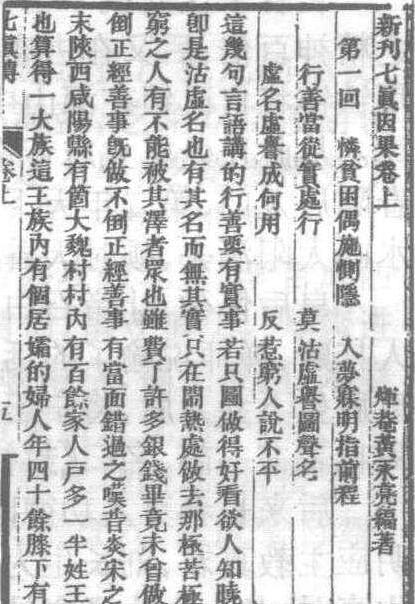 新刊七眞因果卷上 輝菴黃永亮編著
第一回 憐貧困偶施惻隱 入夢寐明指前程
行善當從實處行 莫沽虛譽圖聲名
虛名虛譽成何用 反惹窮人說不平
這幾句言語講的行善要有實事若只圖做得好看欲人知曉
卽是沽虛名也有其名而無其實只在鬧熱處做去那極苦極
窮之人有不能被其澤者眾也雖費了許多銀錢畢竟未曾做
倒正經善事旣做不倒正經善事有當面錯過之嘆昔炎宋之
末陝西咸陽縣有箇大魏村村內有百餘家人戶多一半姓王
也算得一大族這王族內有個居孀的婦人年四十餘膝下有
七眞傳 卷上